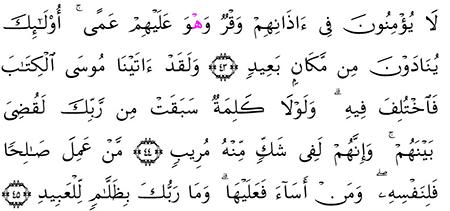 لَا يُؤْمِنُونَ فِى ءَاذَانِهِمْ وَقْرٌ وَهْوَ عَلَيْهِمْ عَمًى ۚ أُوْلَـٰٓئِكَ
يُنَادَوْنَ مِن مَّكَانٍۭ بَعِيدٍ ﴿٤٣﴾ وَلَقَدْ ءَاتَيْنَا مُوسَى ٱلْكِتَـٰبَ
فَٱخْتُلِفَ فِيهِ ۗ وَلَوْلَا كَلِمَةٌ سَبَقَتْ مِن رَّبِّكَ لَقُضِىَ
بَيْنَهُمْ ۚ وَإِنَّهُمْ لَفِى شَكٍّ مِّنْهُ مُرِيبٍ ﴿٤٤﴾ مَّنْ عَمِلَ صَـٰلِحًا
فَلِنَفْسِهِۦ ۖ وَمَنْ أَسَآءَ فَعَلَيْهَا ۗ وَمَا رَبُّكَ بِظَلَّـٰمٍ لِّلْعَبِيدِ ﴿٤٥﴾